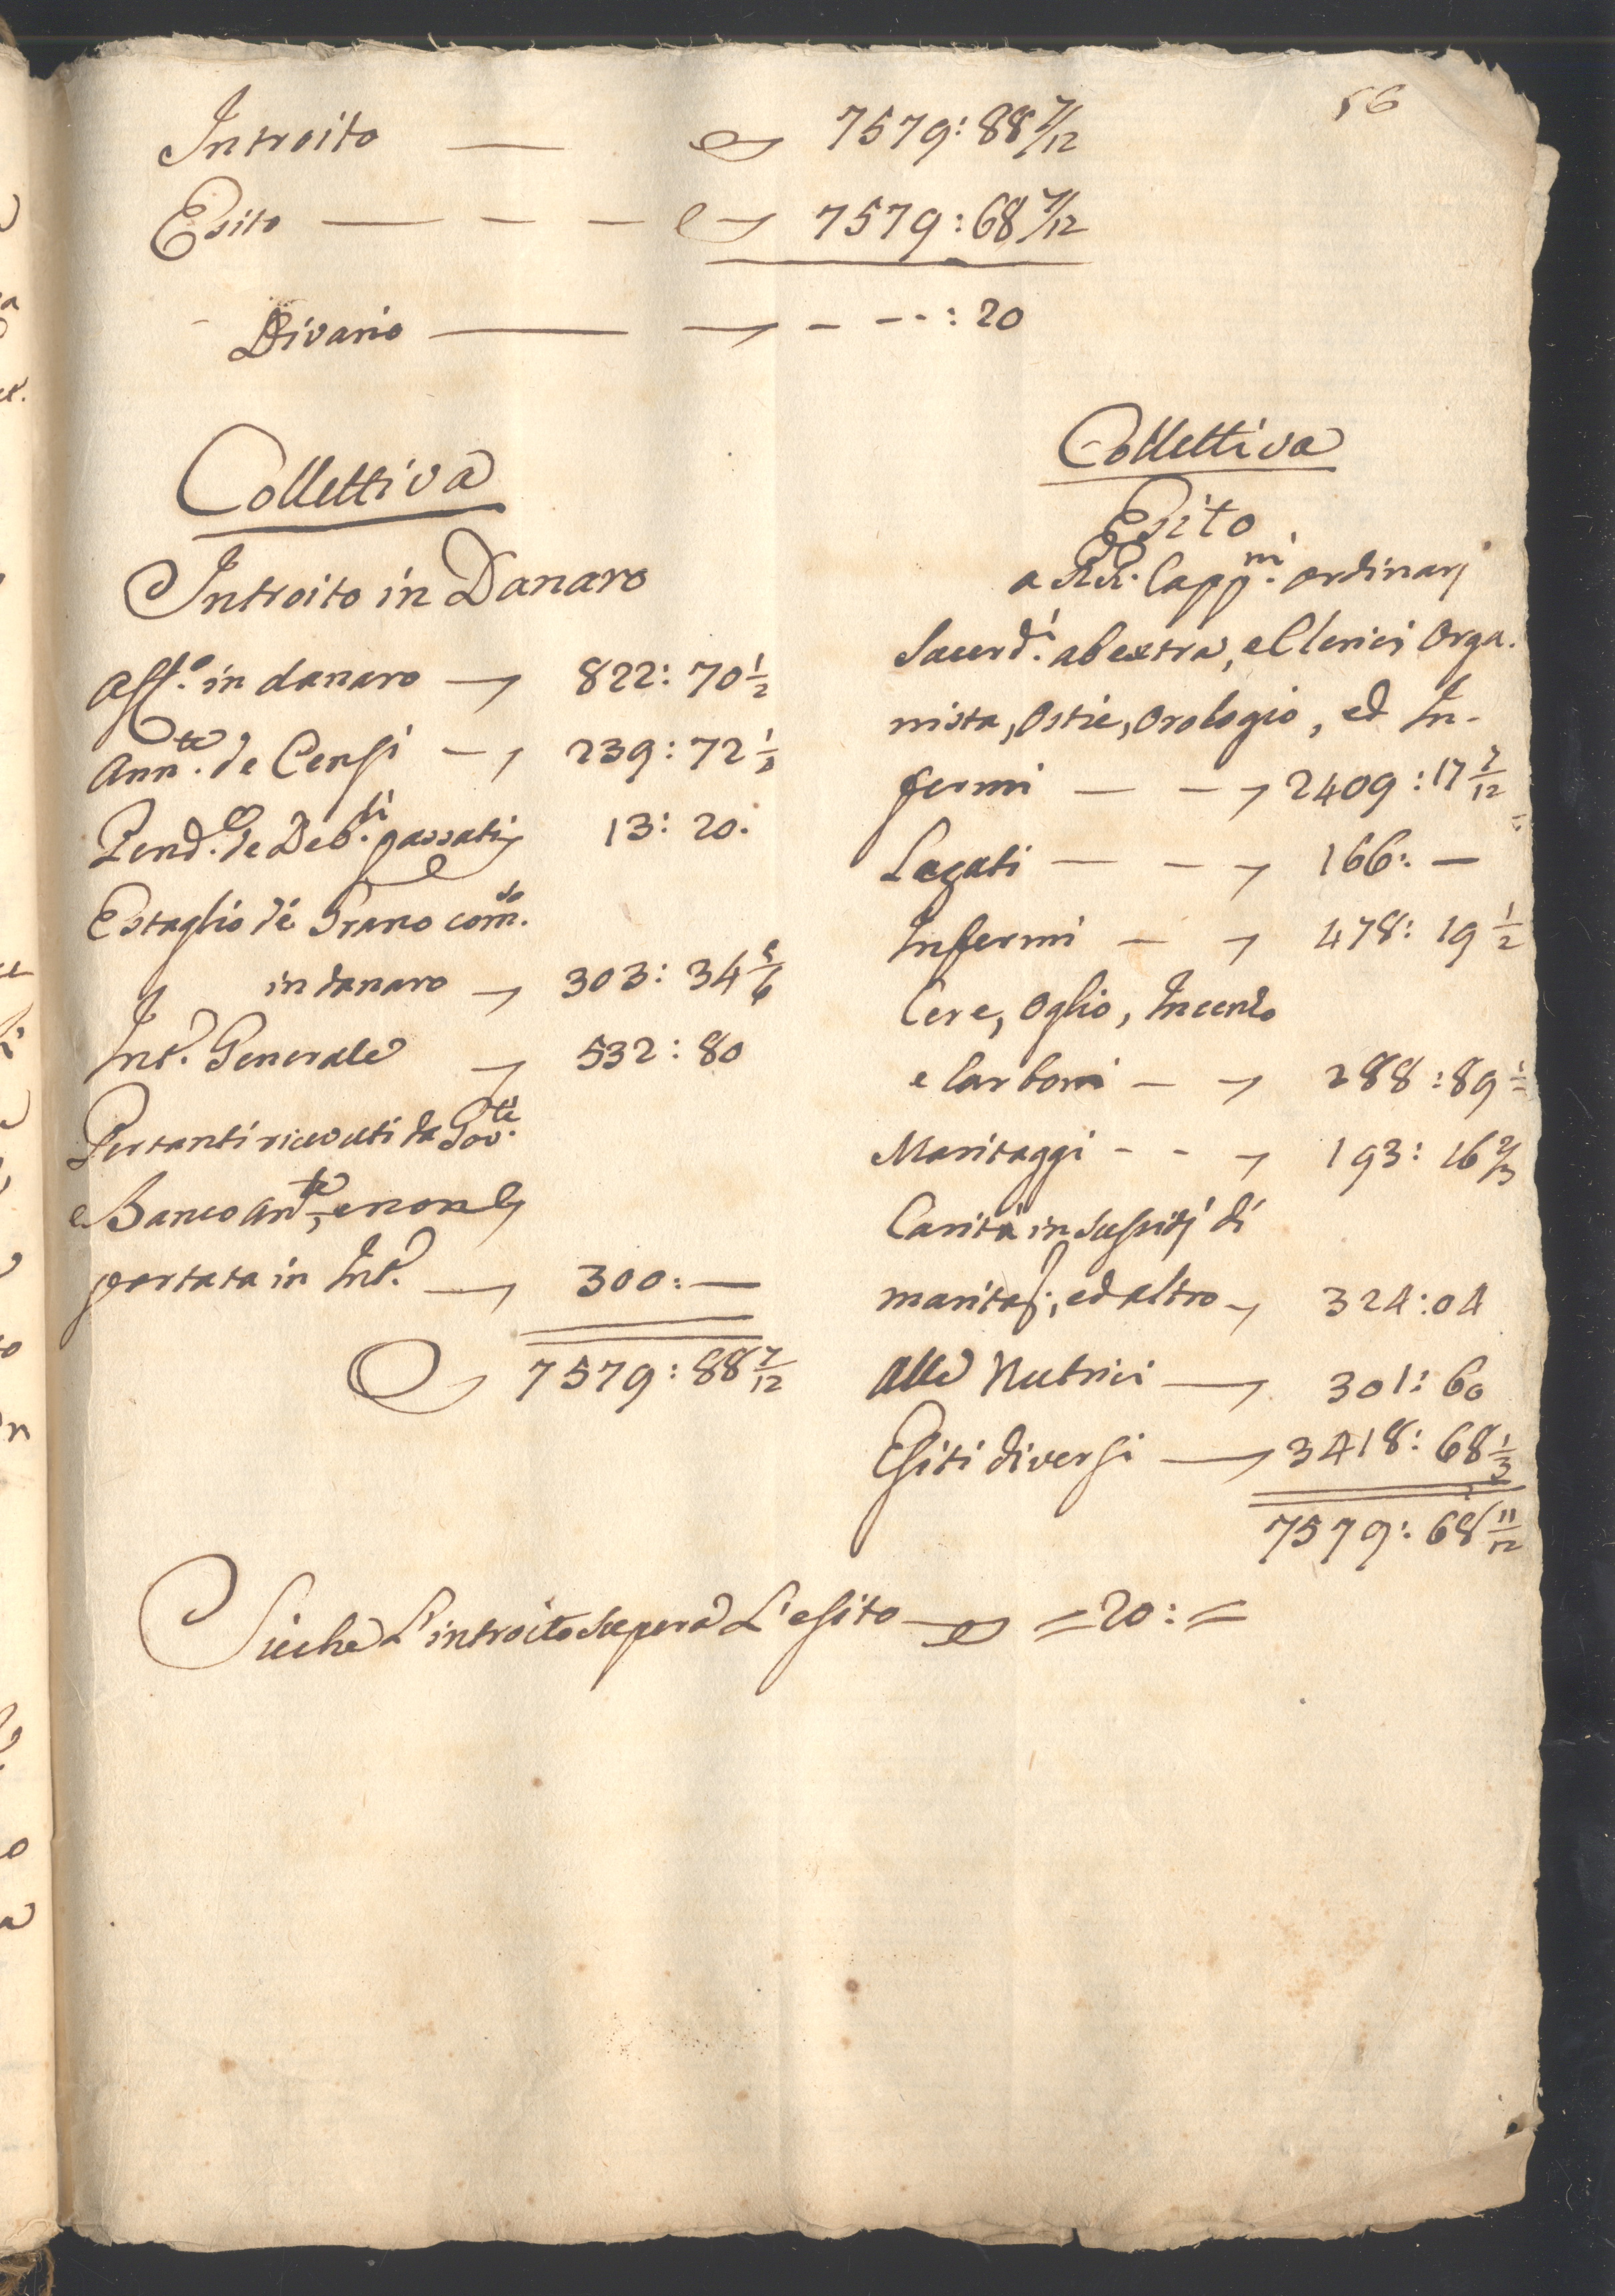 56
Introito — 7579: 88 7/12
Esito — — — 7579: 68 7/12
Divario — - --: 20
Collettiva
Introito in Danaro
Aff.o in danaro — 822: 70 1/2
Ann.te de Censi — 239: 72 1/2
Pend.e de Deb.ti passati 13: 20.
Estaglio de Grano com.to
in danaro — 303: 34 5/6
Int.o Generale 532: 80
Per tanti ricevuti da Gov.te
e Banco ant.te, e non
portata in Int.o — 300: —
7579: 88 7/12
Collettiva
Esito
a RR. Capp.ni ordinarj
Sacerd.i ab extra, e Clerici Orga-
nista, Ostie, Orologio, ed In-
fermi — — 2409: 17 7/12
Legati — — 166: —
Infermi — 478: 19 1/2
Cere, Oglio, Incenso
e Carboni — 288: 89 1/2
Maritaggi - - 193: 16 2/3
Carità in sussidj di
maritag., ed altro 324: 04
Alle Nutrici — 301: 60
Esiti diversi — 3418: 68 1/3
7579: 68 11/12
Sicche L'introito supera L'esito = 20: =